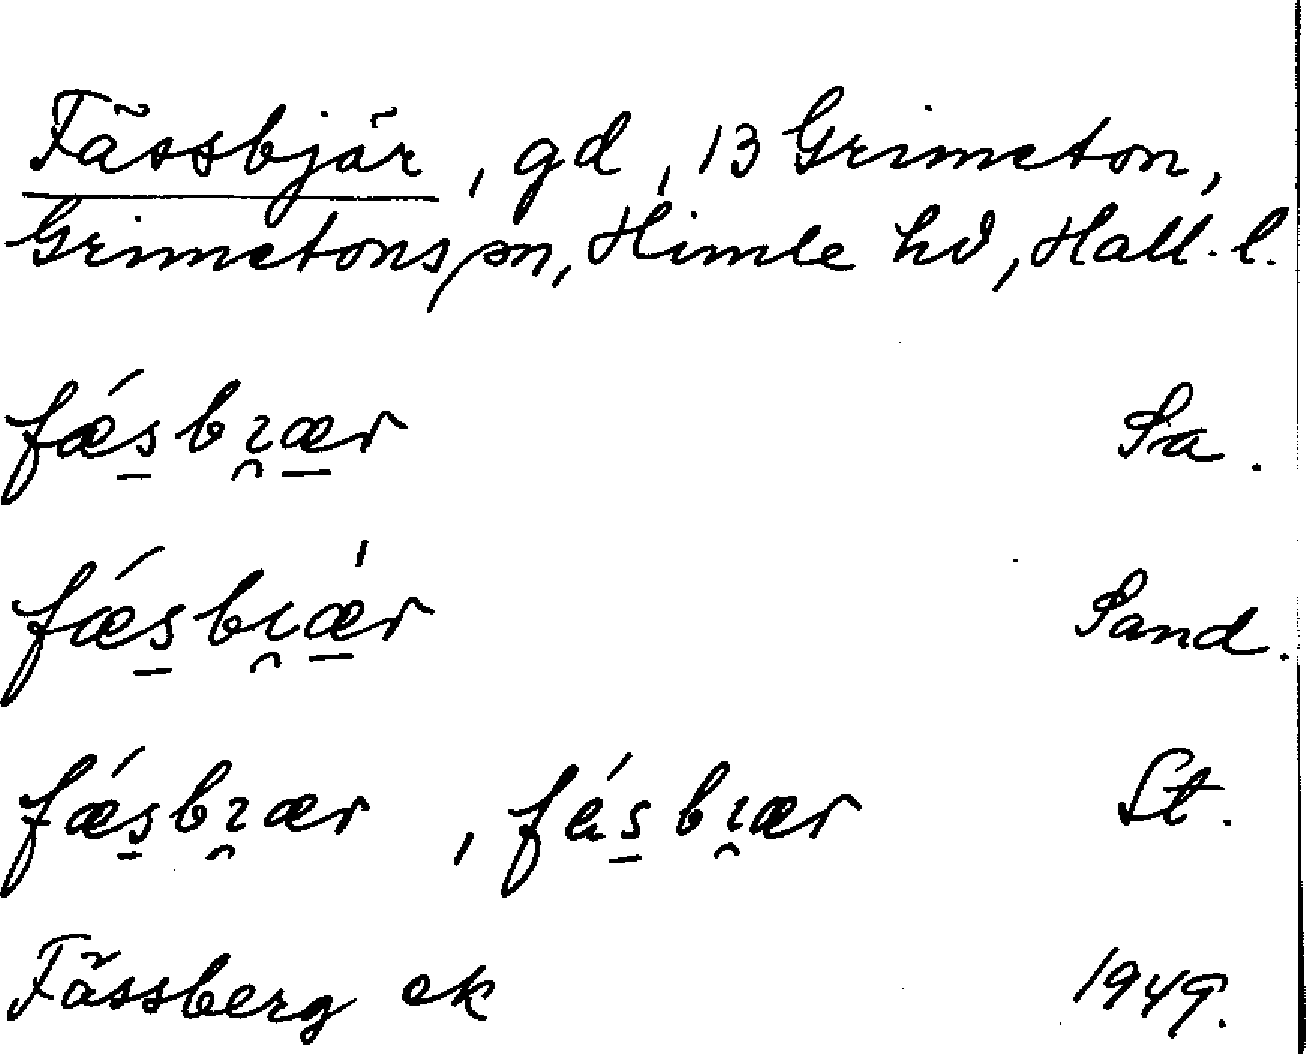 Fässbjär, gd, 13 Grimeton,
Grimetons sn, Himle hd, Hall. l.
fǽs̲bı̯æ̲r Sa.
fǽs̲bı̯æ̲̍r Sand.
fǽs̲bı̯ær, fás̲bı̯ær St.
Fässberg ek 1949.